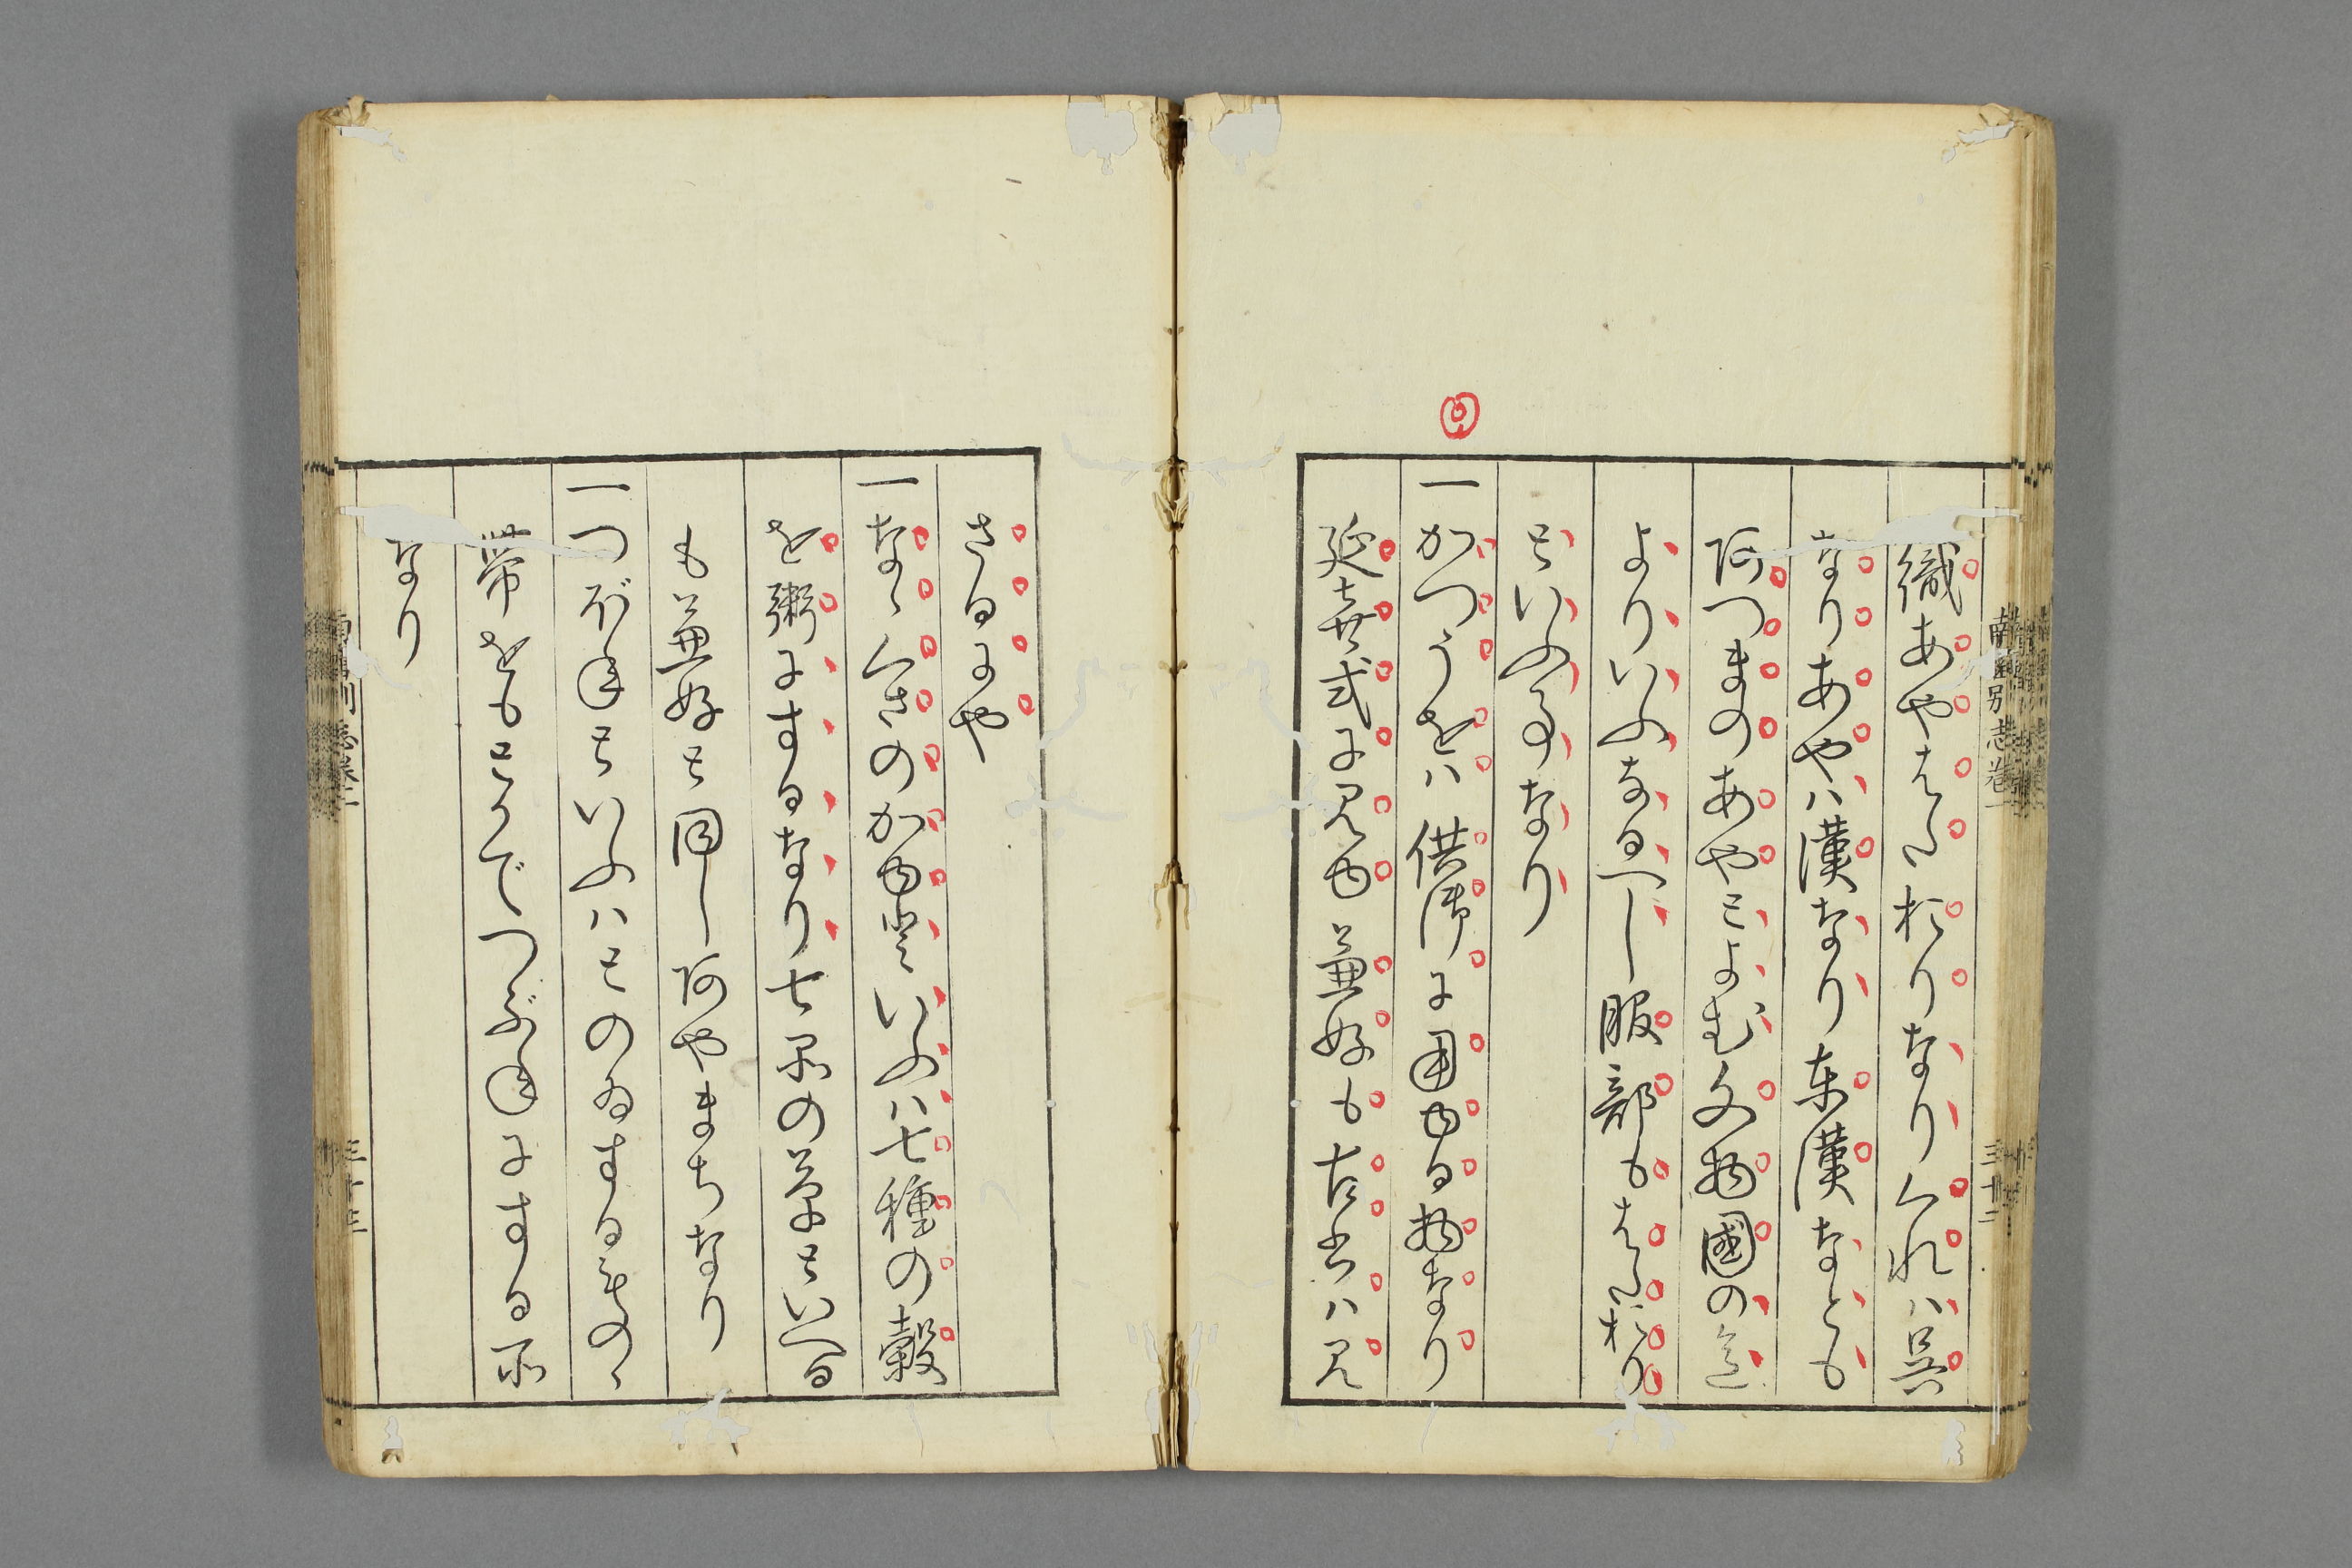 織あやはとりなりくれハ呉
なりあやハ漢なり東漢なとも
阿つまのあやとよむ文物國の名
よりいふなるべし服部もはとり
といふ事なり
一かつうをハ供御に用ゆる物なり
延喜式に見ゆ兼好も古書ハ見
さるにや
一なゝくさのかゆといふハ七種の穀
を粥にするなり七草の草といへる
も兼好と同しあやまちなり
一つぶねといふハとのゐするものゝ
帯をもとかでつぶねにする
なり
南留別志巻一
三十二
三十三